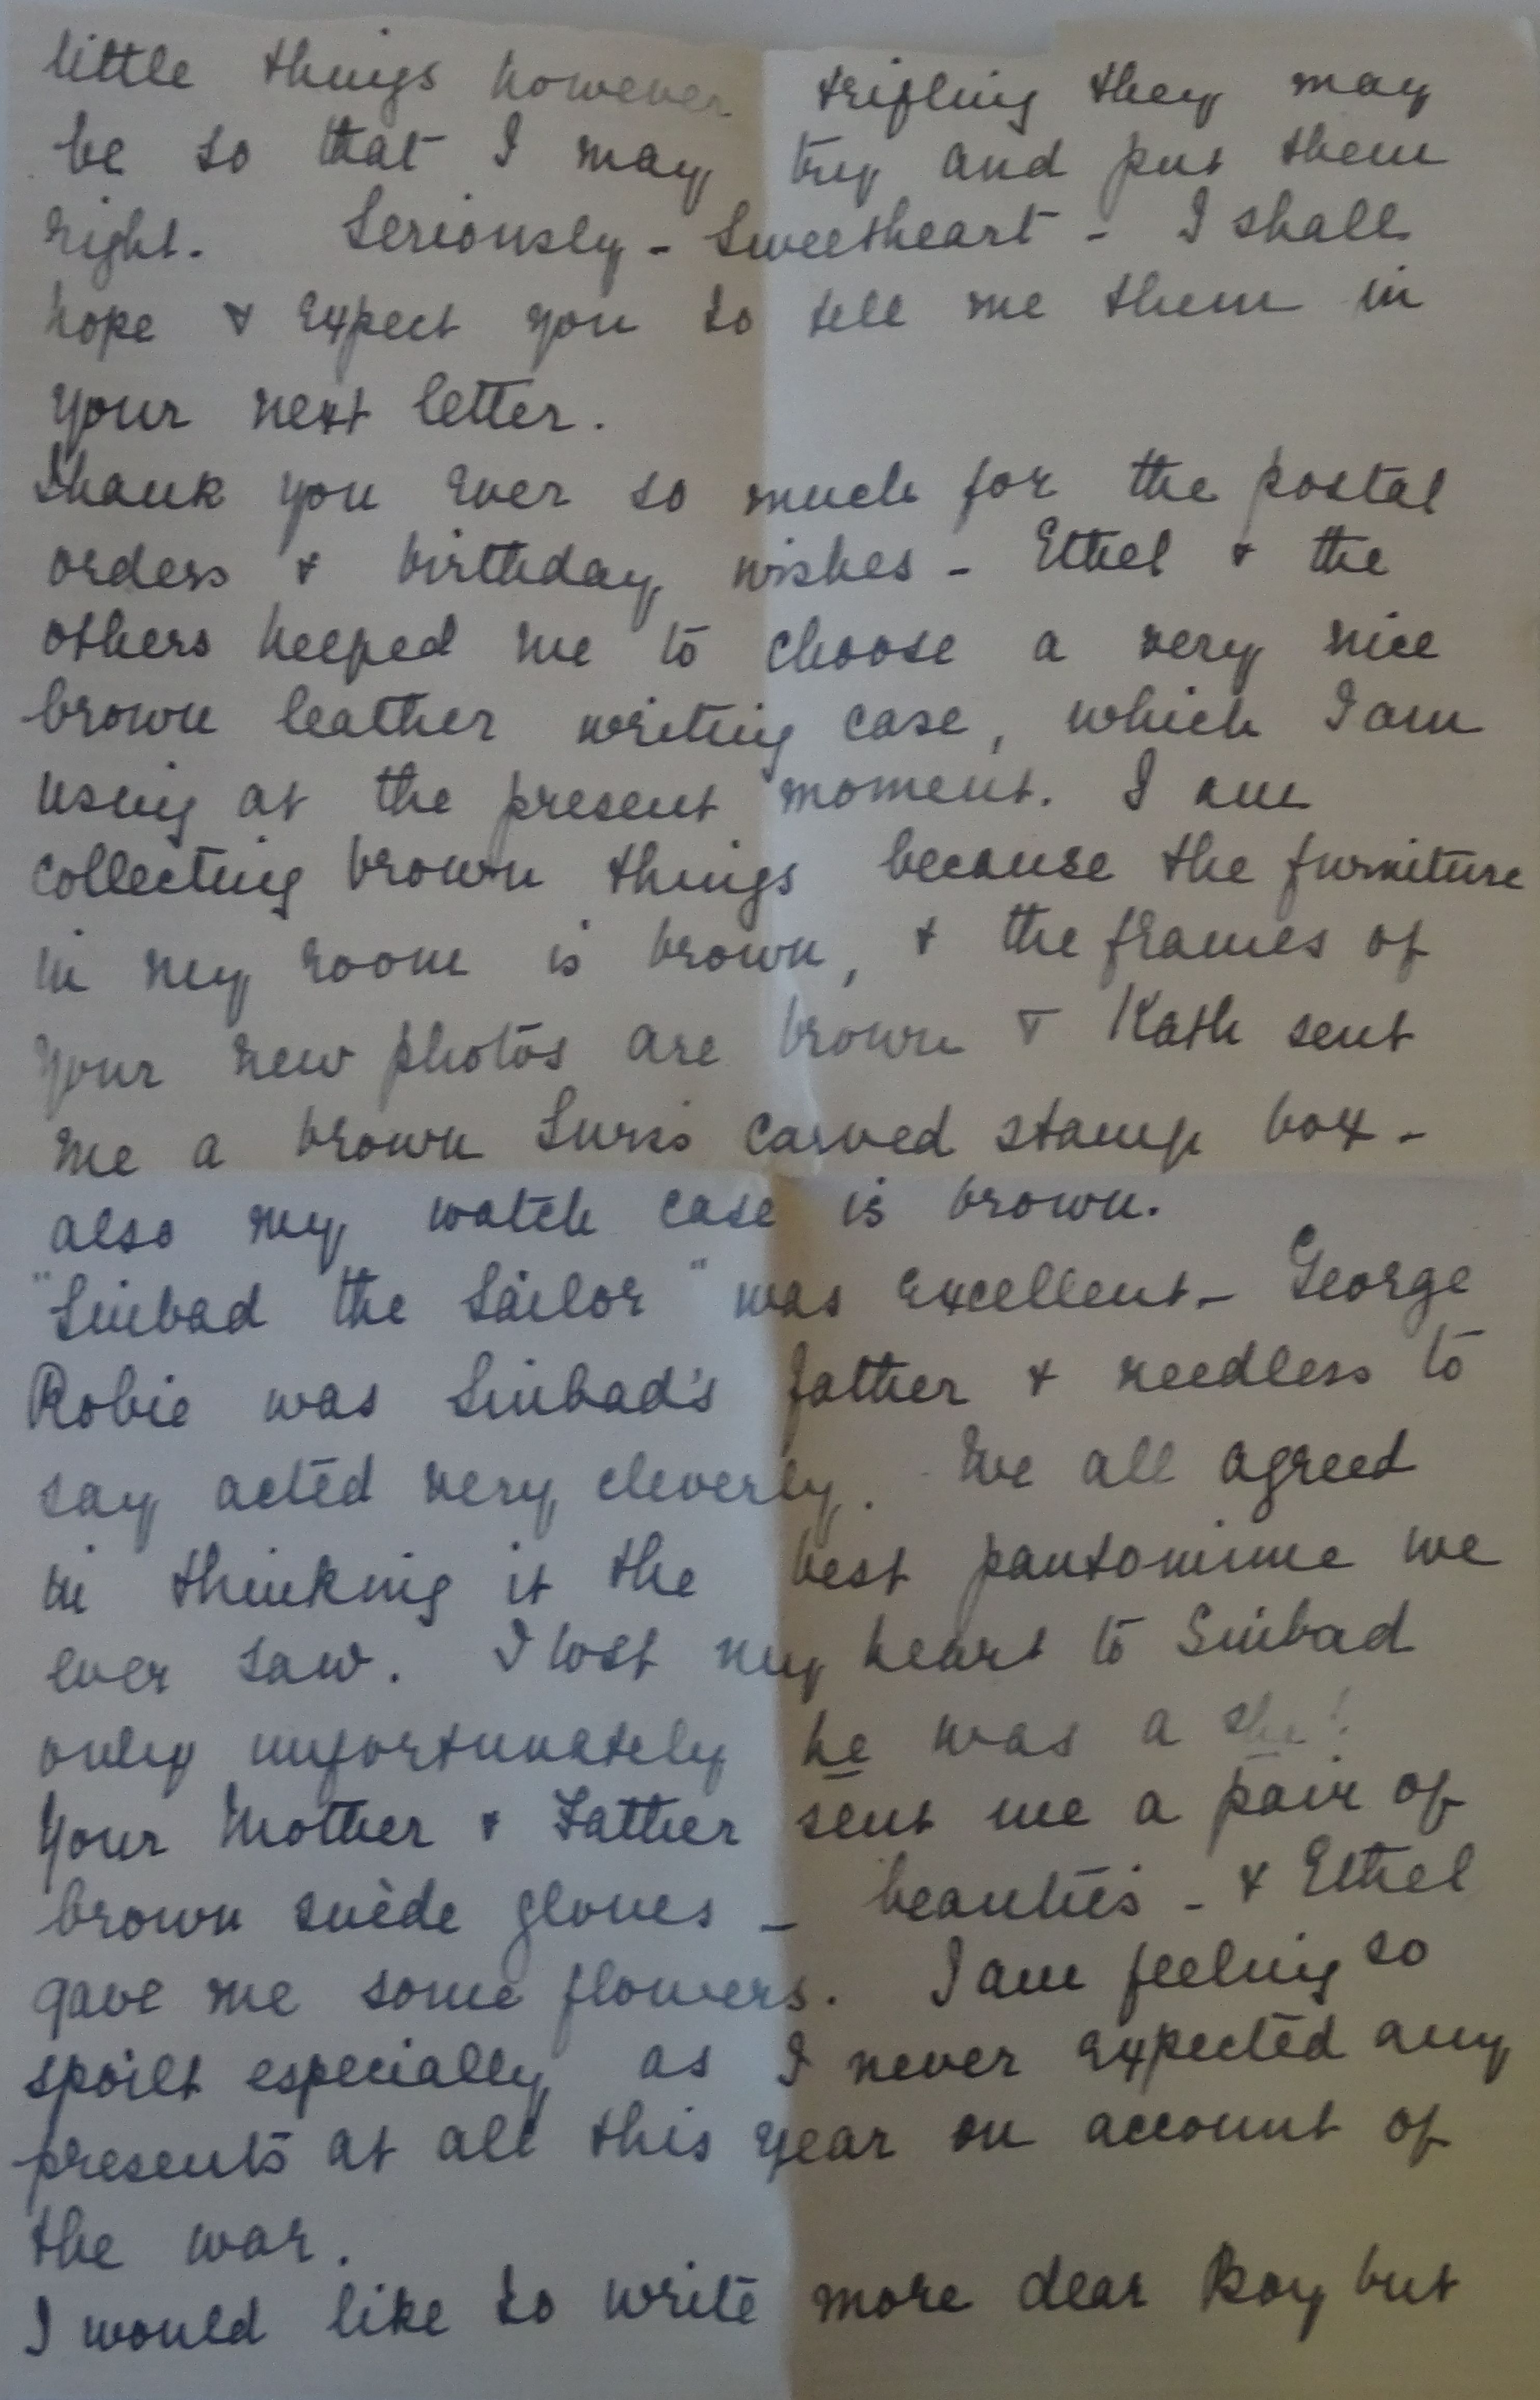 little things however trifling they may
be so that I may try and put them
right. Seriously - Sweetheart - I shall
hope & expect you to tell me them in
your next letter.
Thank you ever so much for the postal
orders & birthday wishes - Ethel & the
others helped me to choose a very nice
brown leather writing case, which I am
using at the present moment. I am
collecting brown things because the furniture
in my room is brown, & the frames of
your new photos are brown & Kath sent
me a brown Swiss carved stamp box -
also my watch case is brown.
"Sinbad the Sailor" was excellent - George
Robie was Sinbad's father & needless to
say acted very cleverly. We all agreed
in thinking it the best pantomime we
ever saw. I lost my heart to Sinbad
only unfortunately he was a she!
Your Mother & Father sent me a pair of
brown suède gloves - beauties - & Ethel
gave me some flowers. I am feeling so
spoilt especially as I never expected any
presents at all this year on account of
the war.
I would like to write more dear Boy but